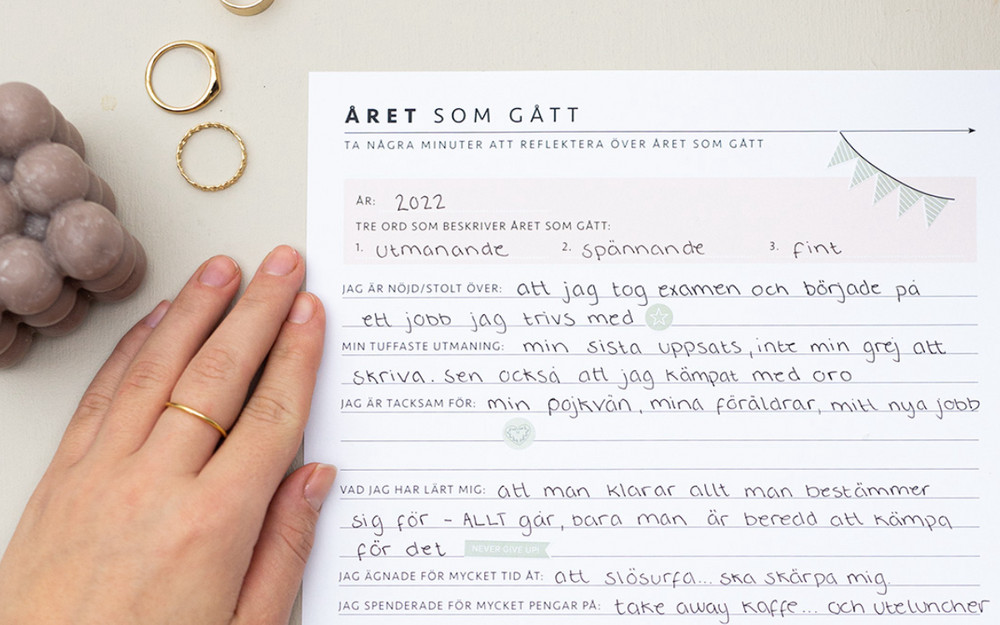 ÅRET SOM GÅTT
TA NÅGRA MINUTER ATT REFLEKTERA ÖVER ÅRET SOM GÅTT
ÅR: 2022
TRE ORD SOM BESKRIVER ÅRET SOM GÅTT:
1. utmanande 2. spännande 3. fint
JAG ÄR NÖJD/STOLT ÖVER: att jag tog examen och började på
ett jobb jag trivs med
MIN TUFFASTE UTMANING: min sista uppsats, inte min grej att
skriva. Sen också att jag kämpat med oro
JAG ÄR TACKSAM FÖR: min pojkvän, mina föräldrar, mitt nya jobb
VAD JAG HAR LÄRT MIG: att man klarar allt man bestämmer
sig för - ALLT går, bara man är beredd att kämpa
för det NEVER GIVE UP!
JAG ÄGNADE FÖR MYCKET TID ÅT: att slösurfa... ska skärpa mig.
JAG SPENDERADE FÖR MYCKET PENGAR PÅ: take away kaffe... och uteluncher